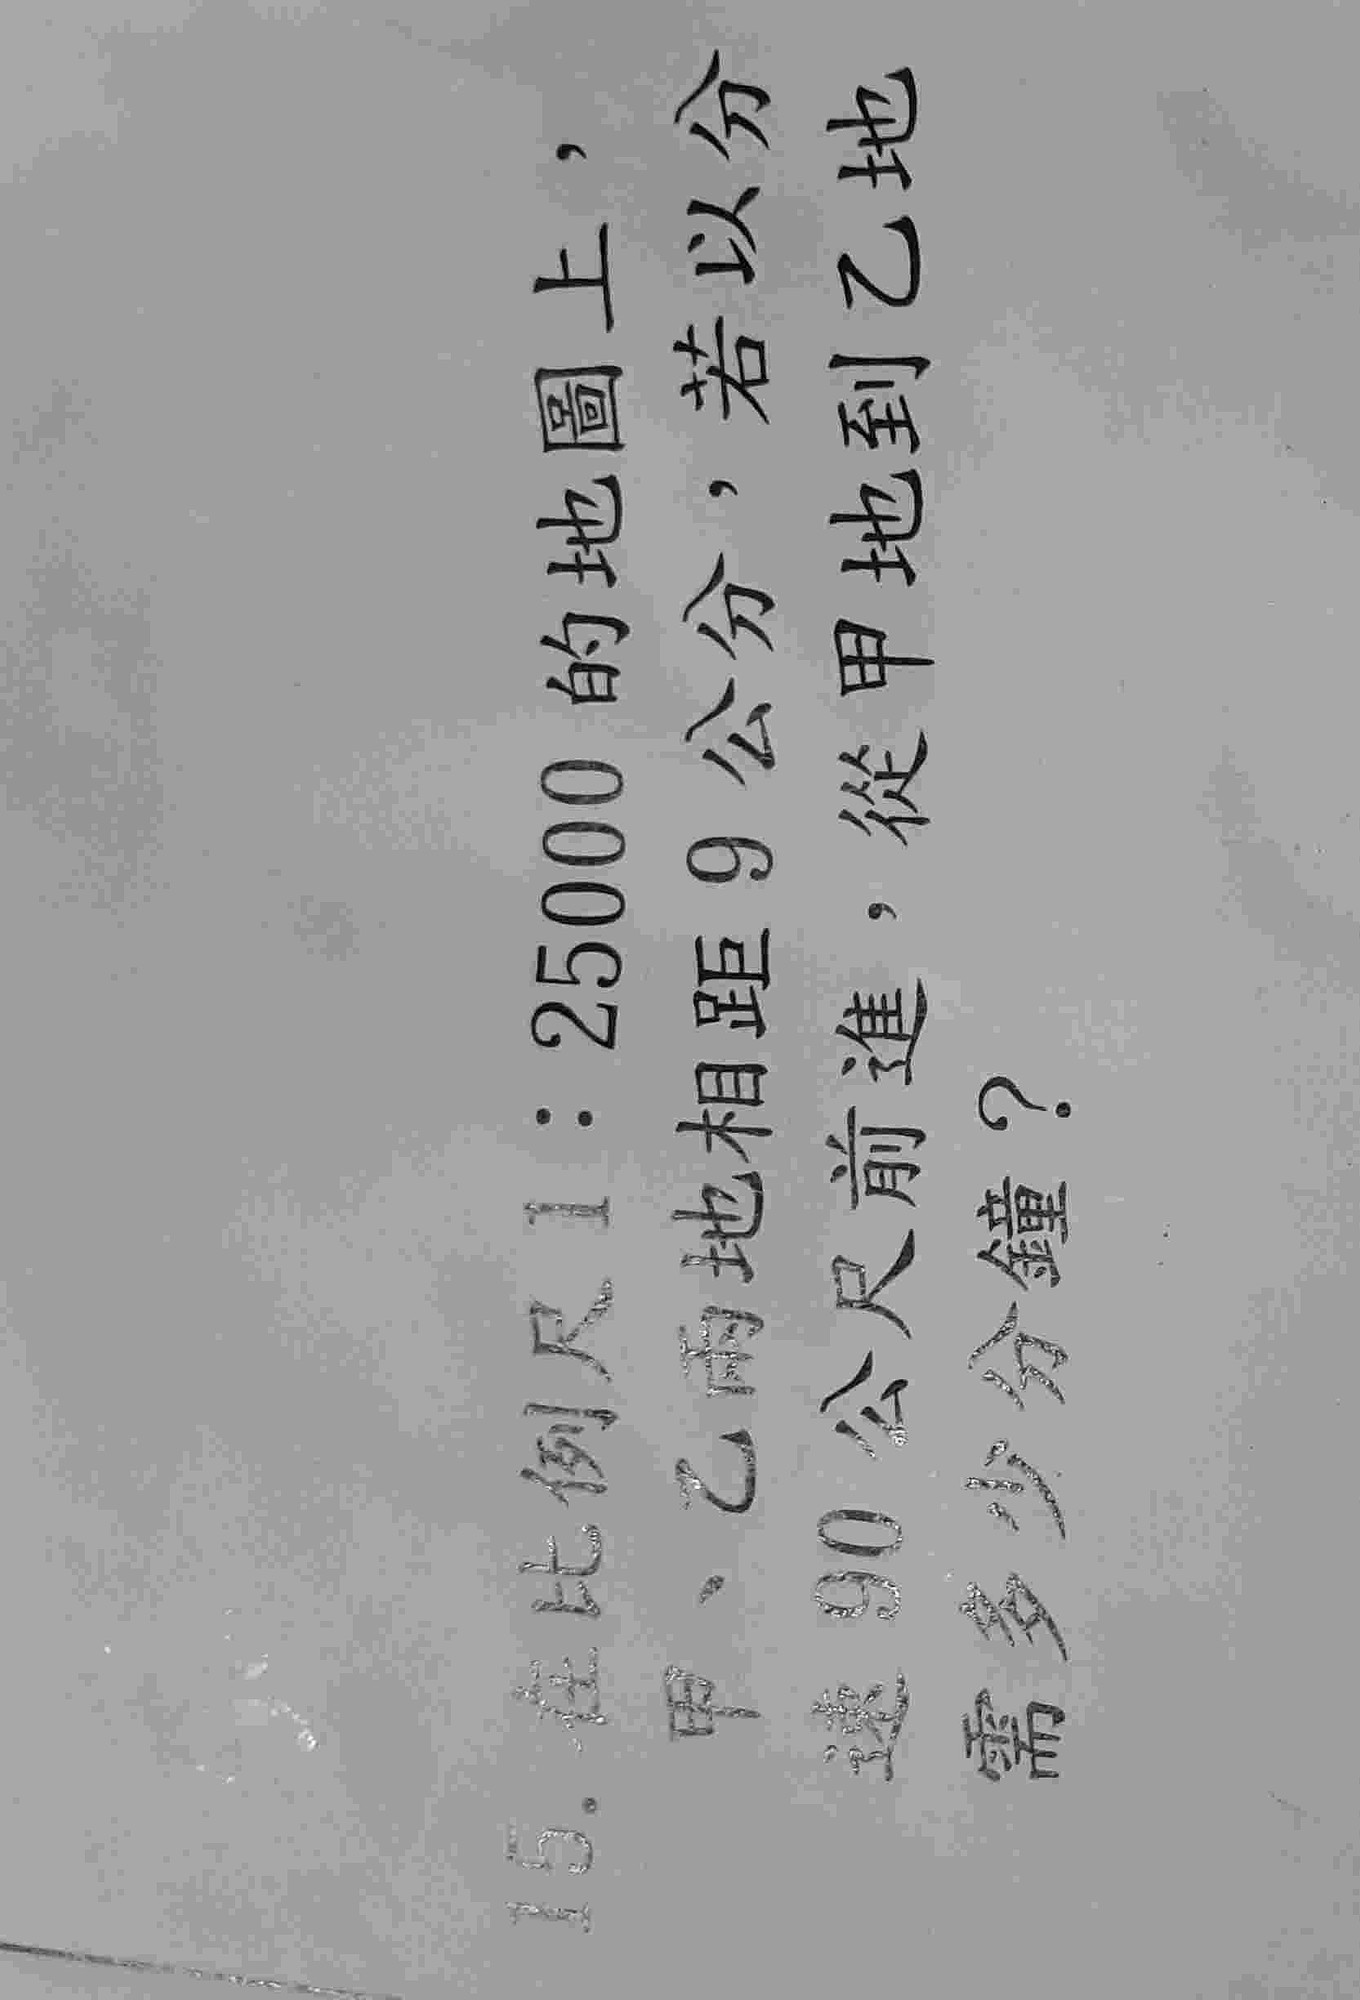 15. 在比例尺 1：25000 的地圖上，
甲、乙兩地相距 9 公分，若以分
速 90 公尺前進，從甲地到乙地
需多少分鐘？